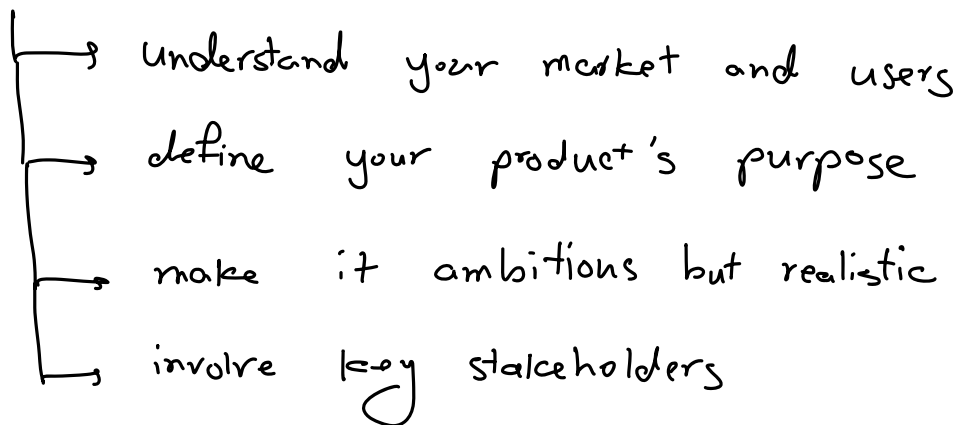 understand your market and users
define your product's purpose
make it ambitions but realistic
involve key stakeholders